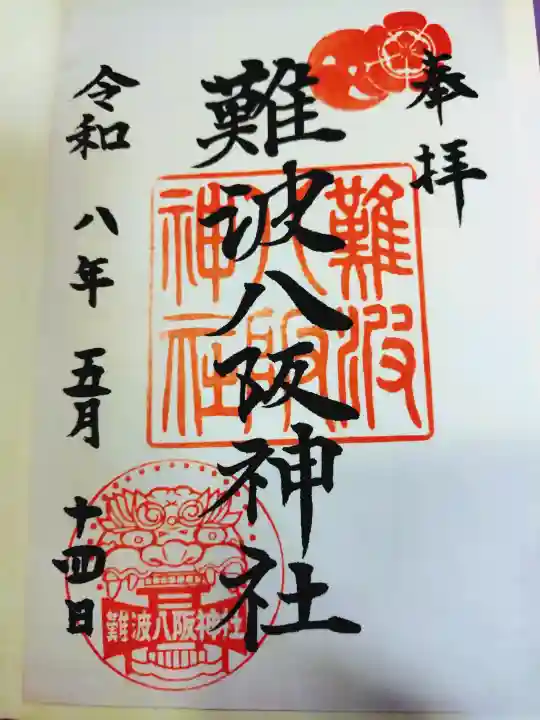 奉拝
難波八阪神社
難波
八阪
神社
令和 八年 五月 十四日
難波八阪神社